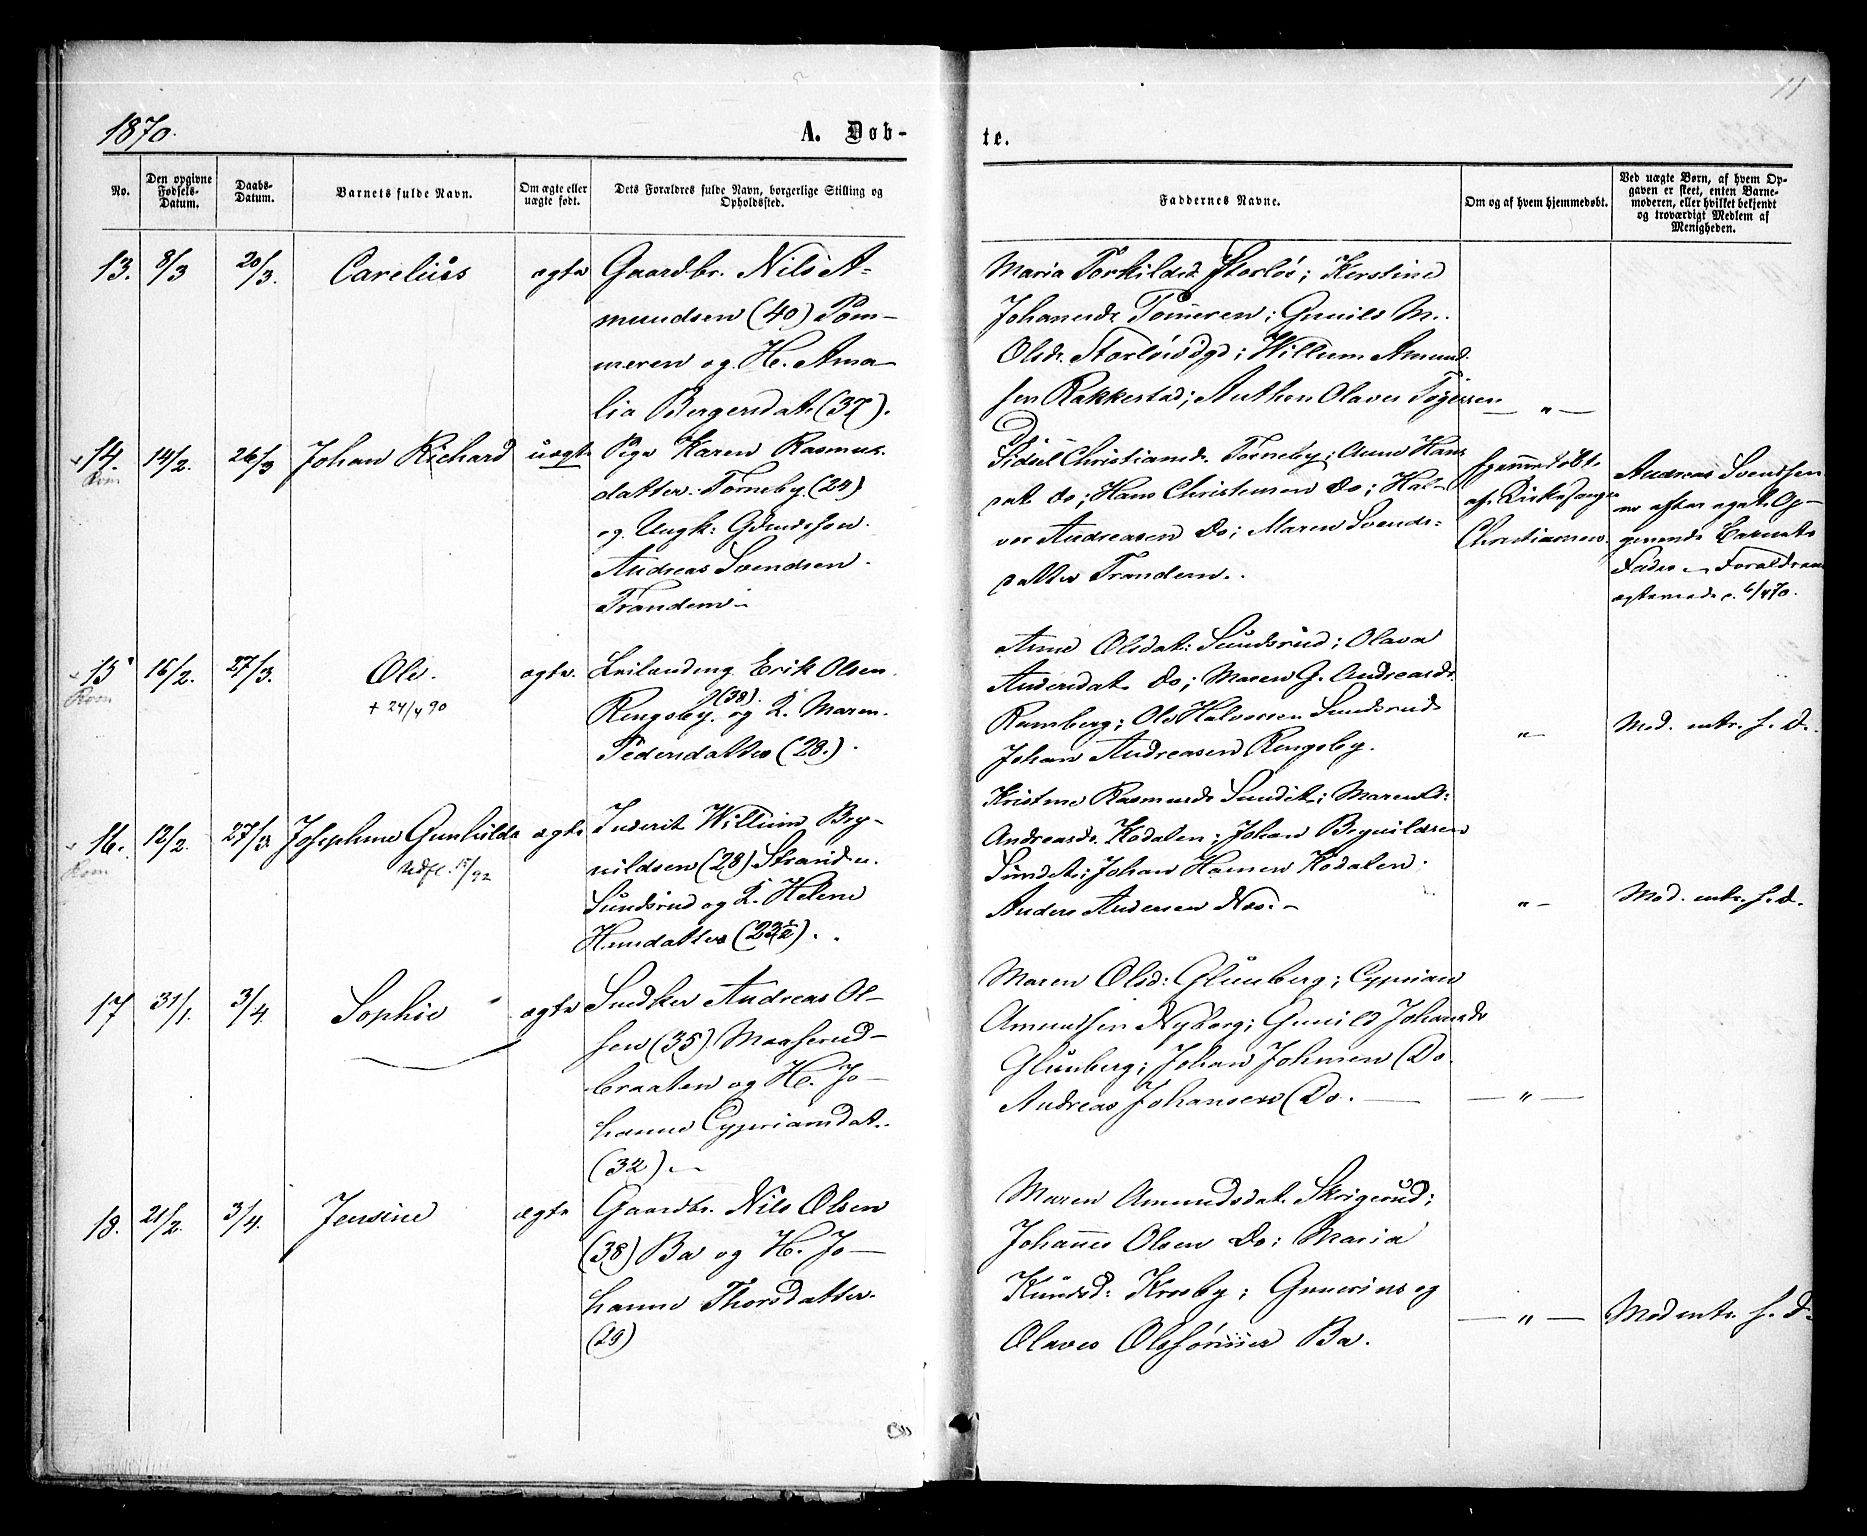 11
1870.
A. Døb-
te.
No.
Den opgivne Fødsels-Datum.
Daabs-Datum.
Barnets fulde Navn.
Om ægte eller uægte født.
Dets Forældres fulde Navn, borgerlige Stilling og Opholdssted.
Faddernes Navne.
Om og af hvem hjemmedøbt.
Ved uægte Børn, af hvem Op-
gaven er skeet, enten Barne-
moderen, eller hvilket bekjendt
og troværdigt Medlem af
Menigheden.
13. 8/3 20/3. Carelius ægte Gaardbr. Nils A-
mundsen (40) Pom-
meren og H. Ama-
lia Bergersdat. (37).
Maria Torkildsd. Storløs; Kerstine
Johanesdr. Pomeren; Gunild M.
Olsdr. Storløs; Willum Amund
sen Rakkestad; Anthon Olaves
— " —
14. 14/2. 26/3 Johan Richard uægte Pige Karen Rasmus-
datter Torneby (24)
og Ungk:
Andreas Svendsen
Trandem
Sidsel Christiansdr. Torneby; Anne Hans
dat. do; Hans Christensen do; Hal-
vor Andreasen do; Maren Svends-
datter Trandem.
hjemmedøbt
af Kirkesanger
Christiansen
Andreas Svendsen
er efter eget Op-
givende Barnets
Fader. Forældrene
ægteviede
15 16/2. 27/3. Ole. ægte. Leilænding Erik Olsen
+ 24/4 90
(38).
Ringsby og K. Maren
Pedersdatter (28.).
Anne Olsdat: Sundsrud; Olava
Andersdat. do; Maren G. Andreasdr.
Ramberg; Ole Halvorsen Sundsrud
Johan Andreasen Ringsby.
" — Mod. intr. f. D.
16. 12/2. 27/3. Josephine Gunhilda ægte Inderst Willum Bry-
Udfl. 15/92
nildsen (28) Strand u.
Sundsrud og K. Helene
Hansdatter (23½).
Kristine Rasmusdr. Sundet; Maren
Andreasdr. Kodalen; Johan Brynildsen
Sundet; Johan Hansen Kodalen;
Anders Andersen Næs.
" — Mod. intr. f. D.
17 31/1. 3/4. Sophie ægte Snedker Andreas Ol-
sen (35)
braaten og H. Jo-
hanne Cypriansdat.
(32).
Maren Olsd: Glunberg; Cyprian
Amundsen Nyborg; Gunild Johansdr
Glunberg; Johan Johnsen Do.
Andreas Johansen Do. —
— " —
18. 21/2. 3/4. Jensine ægte Gaardbr. Nils Olsen
(38) Bø og H. Jo-
hanne Thorsdatter.
(29)
Maren Amundsdat.
Johannes Olsen Do; Maria
Knudsd: Krosby; Gunerius og
Olaves Olssønner Bø.
— " — Mod intr. f. D.